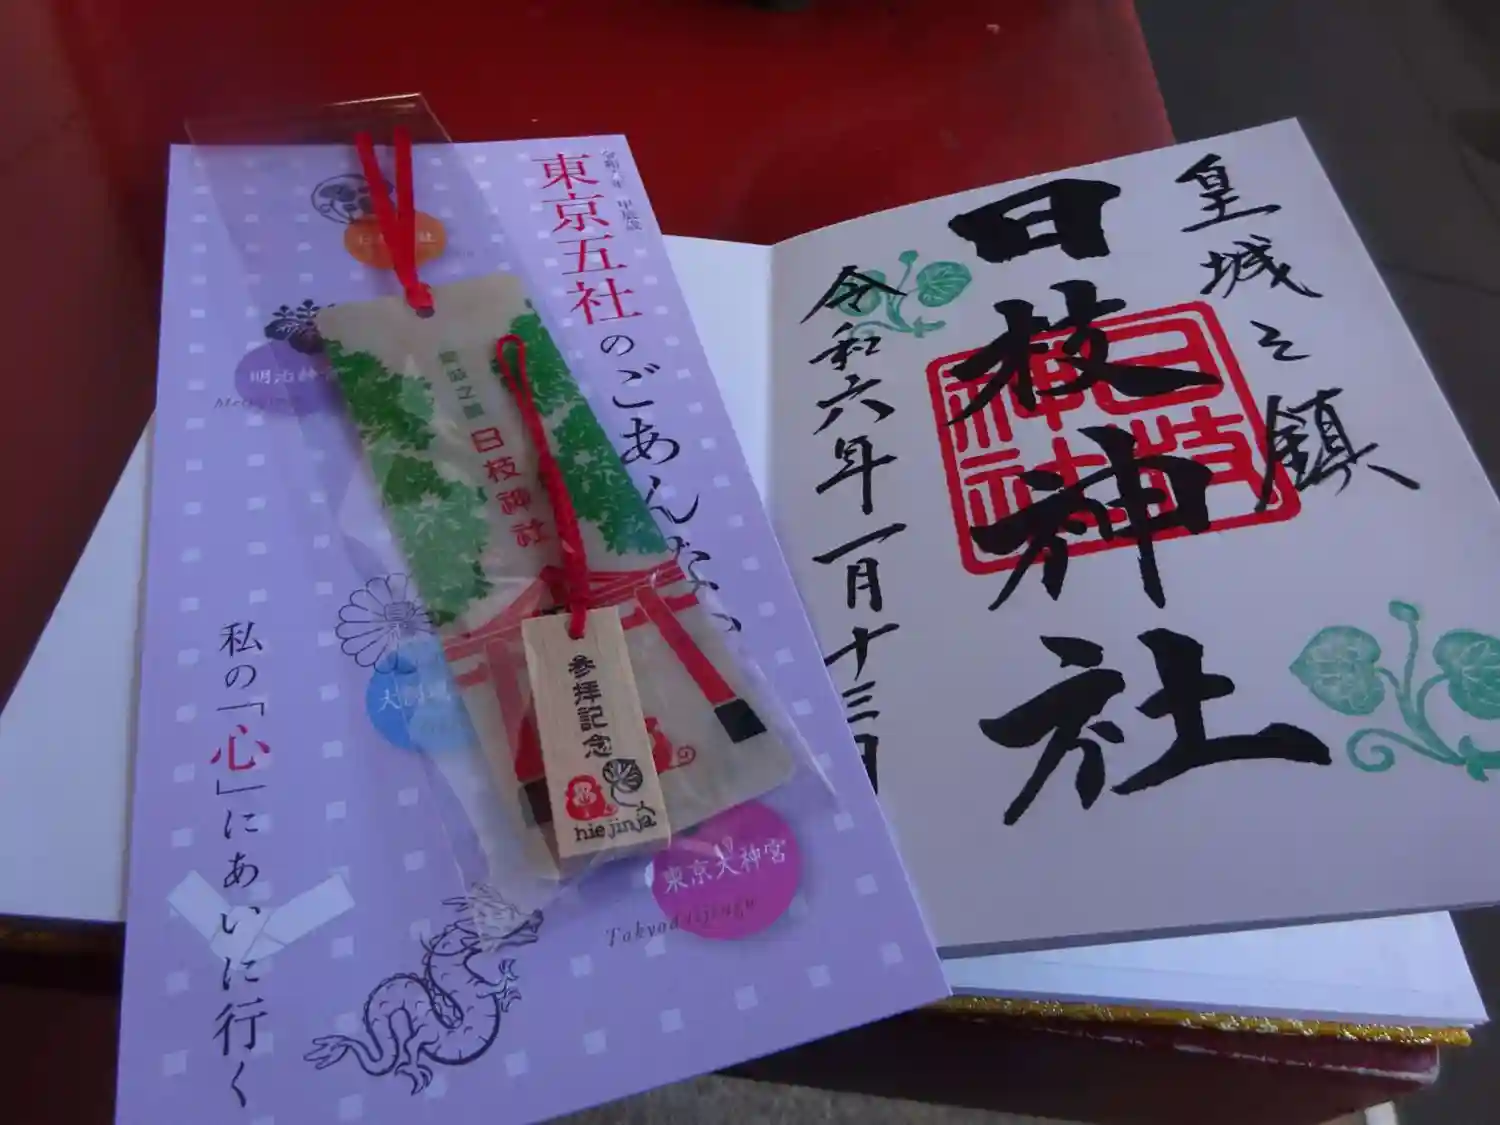 令和六年 甲辰歳
東京五社のごあんない
日枝神社
明治神宮
東京大神宮
Tokyodaijingu
私の「心」にあいに行く
皇城之鎮
日枝神社
参拝記念
hie jinja
皇城之鎮
日枝神社
日枝神社
令和六年一月十三日